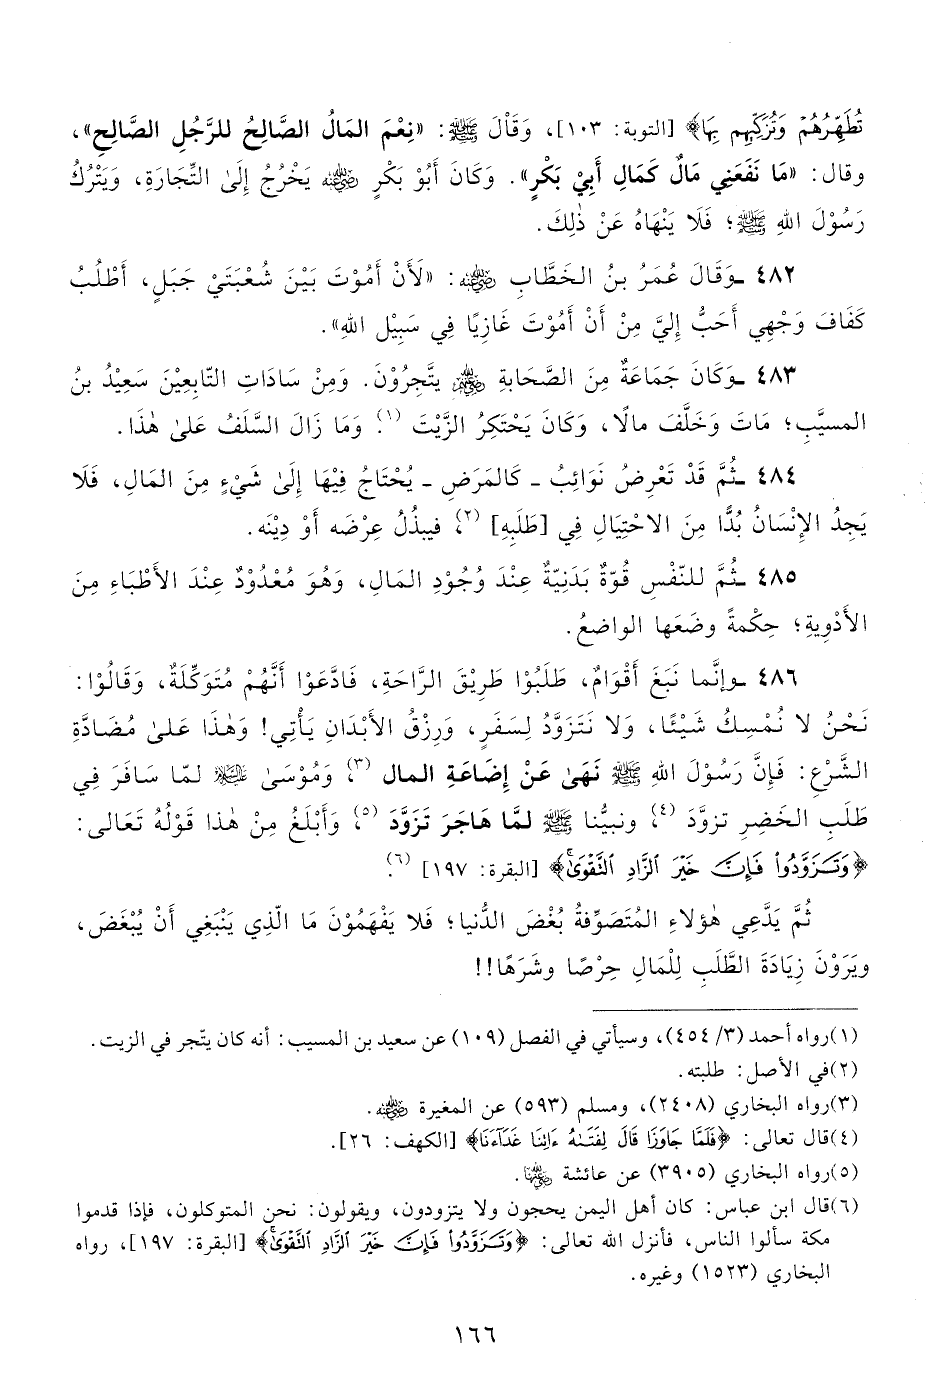 تُطَهِّرُهُمْ وَتُزَكِّيهِم بِهَا﴾ [التوبة: ١٠٣]، وَقَالَ ﷺ: «نِعْمَ المَالُ الصَّالِحُ للرَّجُلِ الصَّالِحِ»،
وقال: «مَا نَفَعَنِي مَالٌ كَمَالِ أَبِيْ بَكْرٍ». وَكَانَ أَبُوْ بَكْرٍ رضي الله عنه يَخْرُجُ إِلَىٰ التِّجَارَةِ، وَيَتْرُكُ
رَسُوْلَ اللهِ ﷺ؛ فَلَا يَنْهَاهُ عَنْ ذٰلِكَ.
٤٨٢ ـ وَقَالَ عُمَرُ بنُ الخَطَّابِ رضي الله عنه: «لَأَنْ أَمُوْتَ بَيْنَ شُعْبَتَيْ جَبَلٍ، أَطْلُبُ
كَفَافَ وَجْهِي أَحَبُّ إِلَيَّ مِنْ أَنْ أَمُوْتَ غَازِيًا فِي سَبِيْلِ اللهِ».
٤٨٣ ـ وَكَانَ جَمَاعَةٌ مِنَ الصَّحَابةِ رضي الله عنهم يتَّجِرُوْنَ. وَمِنْ سَادَاتِ التَّابِعِيْنَ سَعِيْدُ بنُ
المسيَّبِ؛ مَاتَ وَخَلَّفَ مالًا، وَكَانَ يَحْتَكِرُ الزَّيْتَ (١). وَمَا زَالَ السَّلَفُ عَلىٰ هٰذَا.
٤٨٤ ـ ثُمَّ قَدْ تَعْرِضُ نَوَائِبُ ـ كَالمَرَضِ ـ يُحْتَاجُ فِيْهَا إِلَىٰ شَيْءٍ مِنَ المَالِ، فَلَا
يَجِدُ الإِنْسَانُ بُدًّا مِنَ الاحْتِيَالِ فِي [طَلَبِهِ] (٢)، فيبذُلُ عِرْضَه أَوْ دِيْنَه.
٤٨٥ ـ ثُمَّ للنَّفْسِ قُوَّةٌ بَدَنِيَّةٌ عِنْدَ وُجُوْدِ المَالِ، وَهُوَ مُعْدُوْدٌ عِنْدَ الأَطْبَاءِ مِنَ
الأَدْوِيةِ؛ حِكْمةً وضَعَها الواضعُ.
٤٨٦ ـ وإنَّما نَبَغَ أَقْوَامٌ، طَلَبُوْا طَرِيْقَ الرَّاحَةِ، فَادَّعَوْا أَنَّهُمْ مُتَوَكِّلَةٌ، وَقَالُوْا:
نَحْنُ لا نُمْسِكُ شَيْئًا، وَلا نَتَزَوَّدُ لِسَفَرٍ، وَرِزْقُ الأَبْدَانِ يَأْتِي! وَهٰذَا عَلىٰ مُضَادَّةِ
الشَّرْعِ: فَإِنَّ رَسُوْلَ اللهِ ﷺ نَهَىٰ عَنْ إِضَاعَةِ المال (٣)، وَمُوْسَىٰ عليه السلام لمّا سَافَرَ فِي
طَلَبِ الخَضِرِ تزوَّد (٤)، ونبيُّنا ﷺ لمَّا هَاجَرَ تَزَوَّدَ (٥)، وَأَبْلَغُ مِنْ هٰذا قَوْلُهُ تَعَالى:
﴿وَتَزَوَّدُواْ فَإِنَّ خَيْرَ ٱلزَّادِ ٱلتَّقْوَىٰ﴾ [البقرة: ١٩٧] (٦).
ثُمَّ يَدَّعِي هٰؤلاءِ المُتَصَوِّفةُ بُغْضَ الدُّنيا؛ فَلا يَفْهَمُوْنَ مَا الّذِي يَنْبَغِي أَنْ يُبْغَضَ،
ويَرَوْنَ زِيَادَةَ الطَّلَبِ لِلْمَالِ حِرْصًا وشَرَهًا!!
(١) رواه أحمد (٣/ ٤٥٤)، وسيأتي في الفصل (١٠٩) عن سعيد بن المسيب: أنه كان يتّجر في الزيت.
(٢) في الأصل: طلبته.
(٣) رواه البخاري (٢٤٠٨)، ومسلم (٥٩٣) عن المغيرة رضي الله عنه.
(٤) قال تعالى: ﴿فَلَمَّا جَاوَزَا قَالَ لِفَتَىٰهُ ءَاتِنَا غَدَآءَنَا﴾ [الكهف: ٢٦].
(٥) رواه البخاري (٣٩٠٥) عن عائشة رضي الله عنها.
(٦) قال ابن عباس: كان أهل اليمن يحجون ولا يتزودون، ويقولون: نحن المتوكلون، فإذا قدموا
مكة سألوا الناس، فأنزل الله تعالى: ﴿وَتَزَوَّدُواْ فَإِنَّ خَيْرَ ٱلزَّادِ ٱلتَّقْوَىٰ﴾ [البقرة: ١٩٧]، رواه
البخاري (١٥٢٣) وغيره.
١٦٦